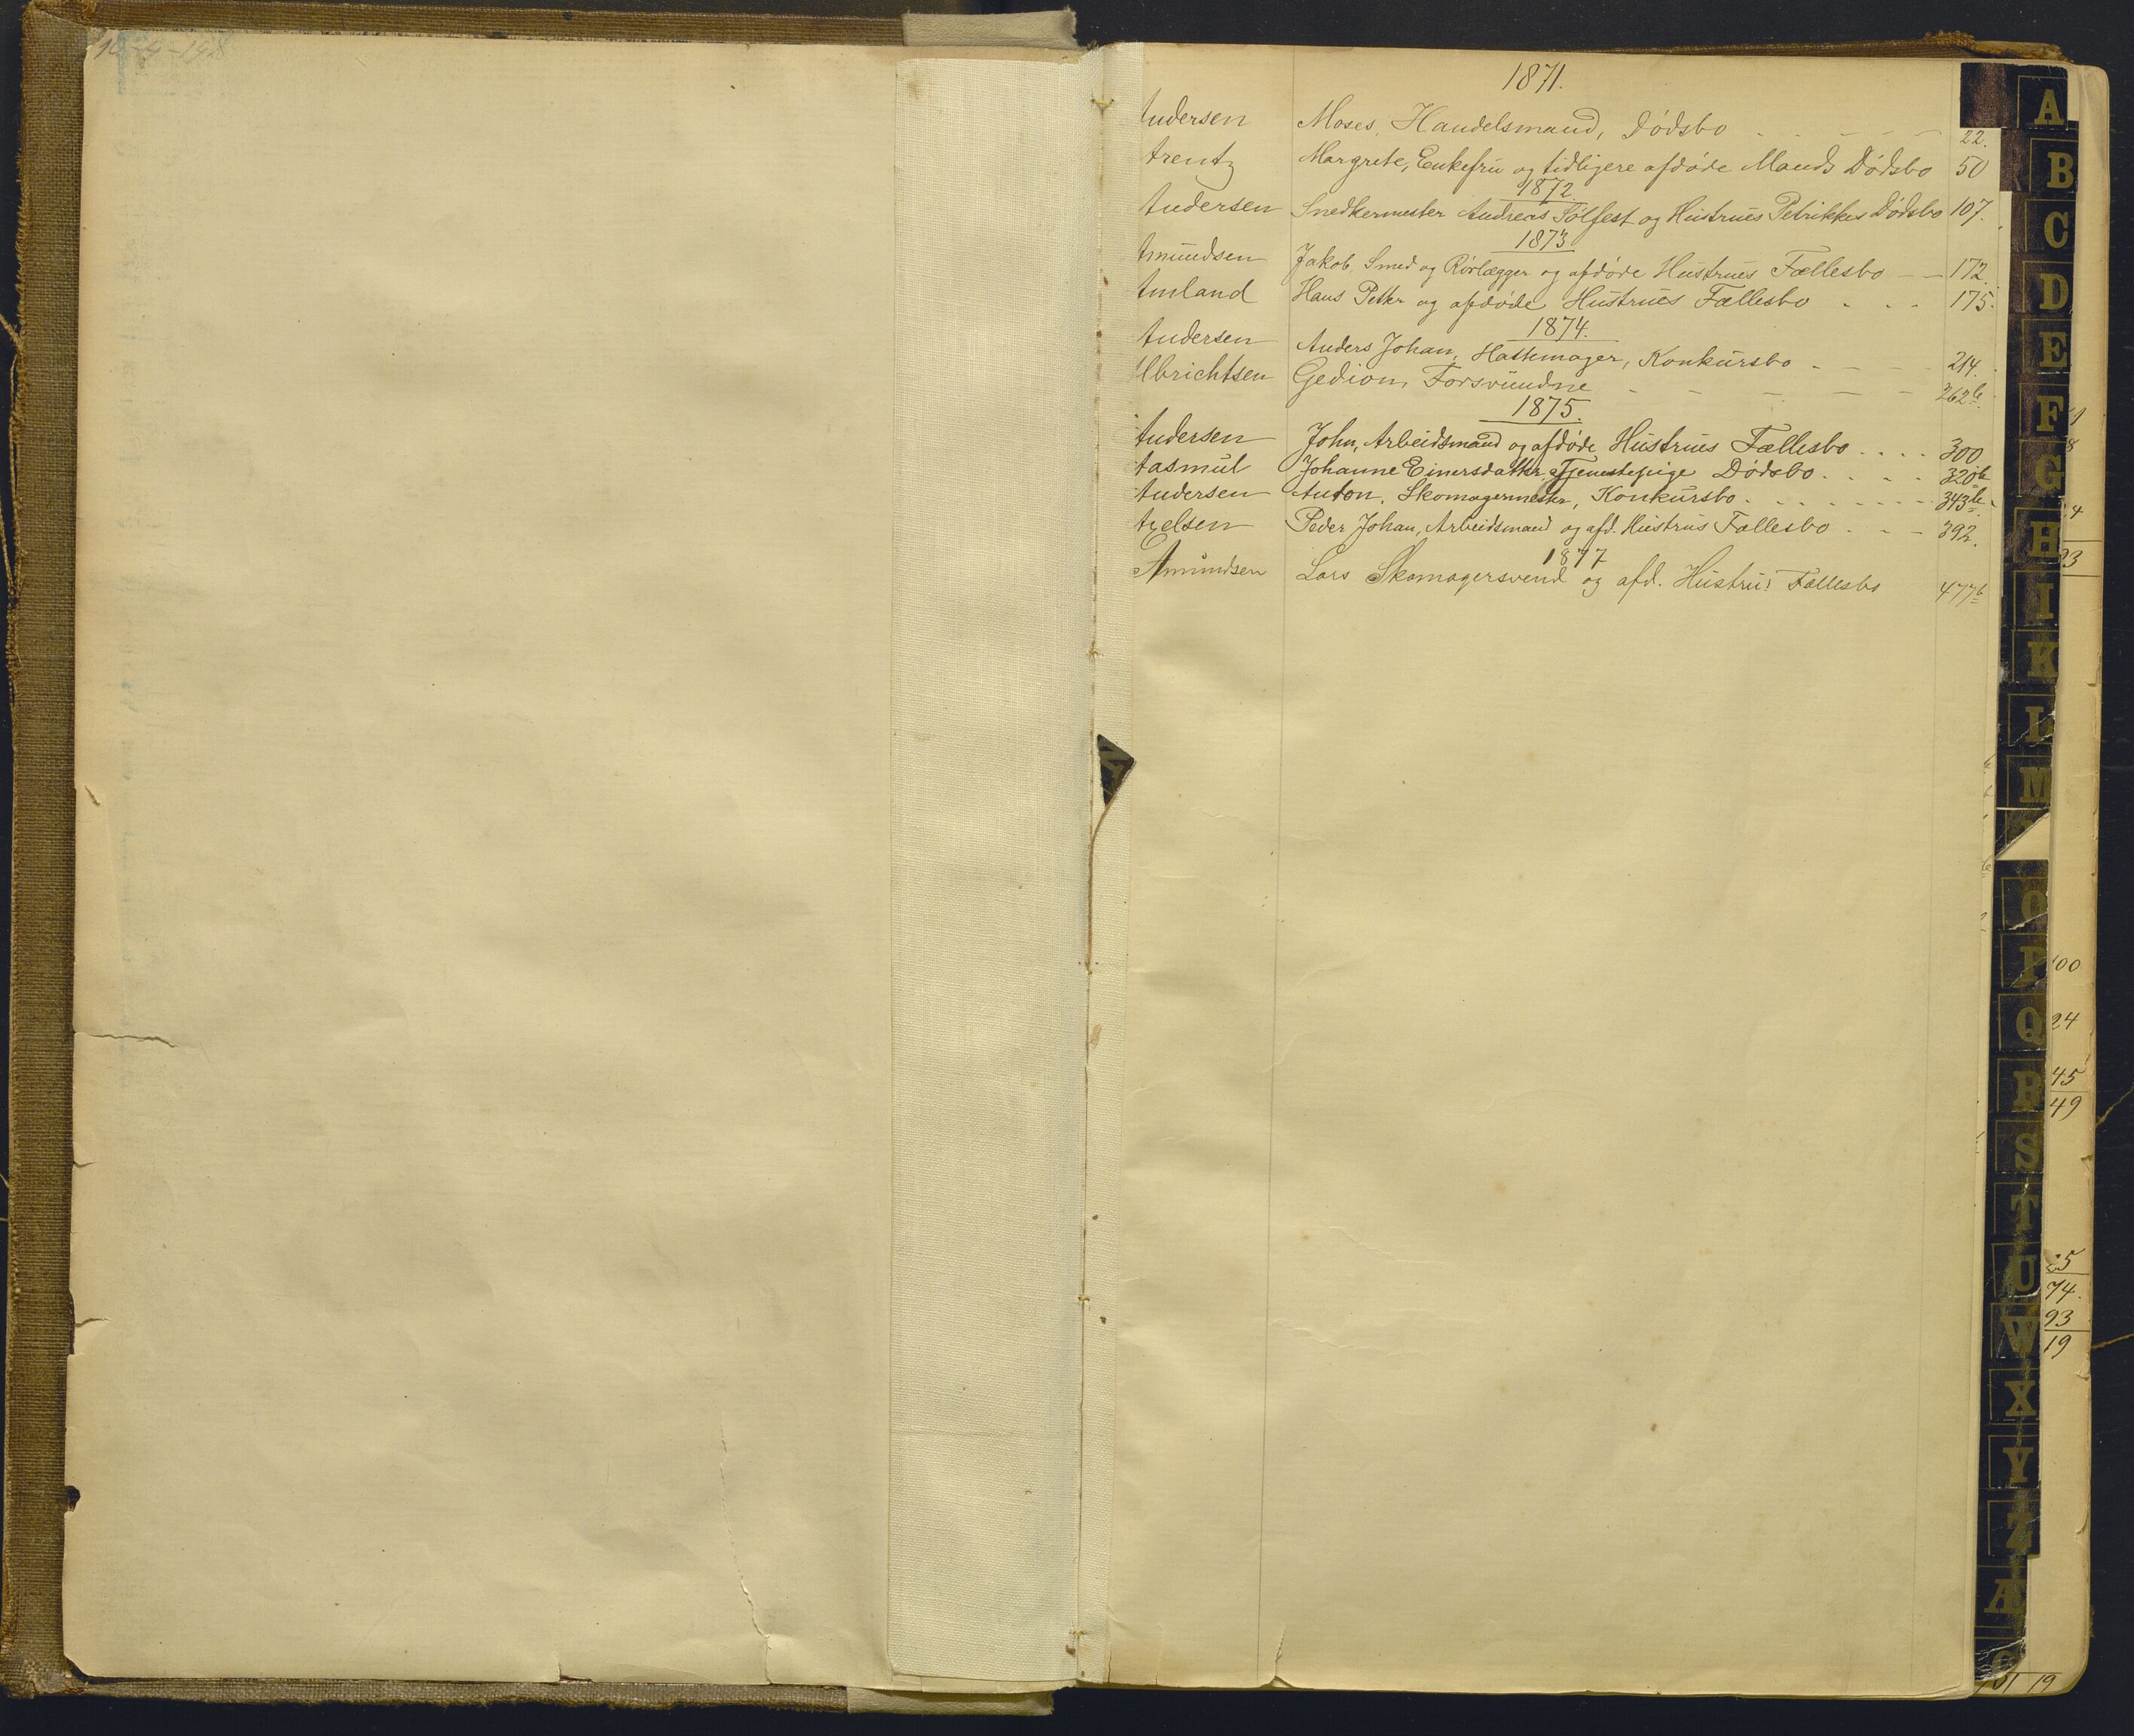 1871.
Andersen Moses, Handelsmand, Dødsbo 22.
Arentz Margrete, Enkefru og tidligere afdøde Mands Dødsbo 50
1872
Andersen Snedkermester Andreas Tølfest og Hustrues Petrikkes Dødsbo 107.
1873
Amundsen Jakob, Smed og Rørlægger og afdøde Hustrues Fællesbo 172.
Amland Hans Petter og afdøde Hustrues Fællesbo 175.
1874.
Andersen Anders Johan, Hattemager, Konkursbo 214.
Albrichtsen Gedion, Forsvundne 262b.
1875.
Andersen John, Arbeidsmand og afdøde Hustrues Fællesbo 300
Aasmul Johanne Einersdatter, Tjenestepige Dødsbo 320b
Andersen Anton, Skomagermester, Konkursbo 343b.
Axelsen Peder Johan, Arbeidsmand og afd. Hustrus Fællesbo 392.
1877
Amundsen Lars Skomagersvend og afd. Hustrus Fællesbo 477b
A
B
C
D
E
F
G
H
I
K
L
M
O
P
Q
R
S
T
U
W
X
Y
Z
Æ
100
24
45
49
74.
93
19
19